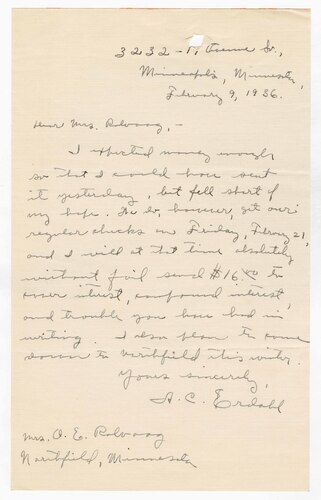 3232 - 17 Avenue So.,
Minneapolis, Minnesota,
February 9, 1936.
Dear Mrs. Rolvaag,-
I expected money enough
so that I could have sent
it yesterday, but fell short of
my hope. We do, however, get our
regular checks on Friday, February 21,
and I will at that time absolutely
without fail send $16.00 to
cover interest, compound interest,
and trouble you have had in
writing. I also plan to come
down to Northfield this winter.
Yours sincerely,
A. C. Erdahl
Mrs. O. E. Rolvaag
Northfield, Minnesota